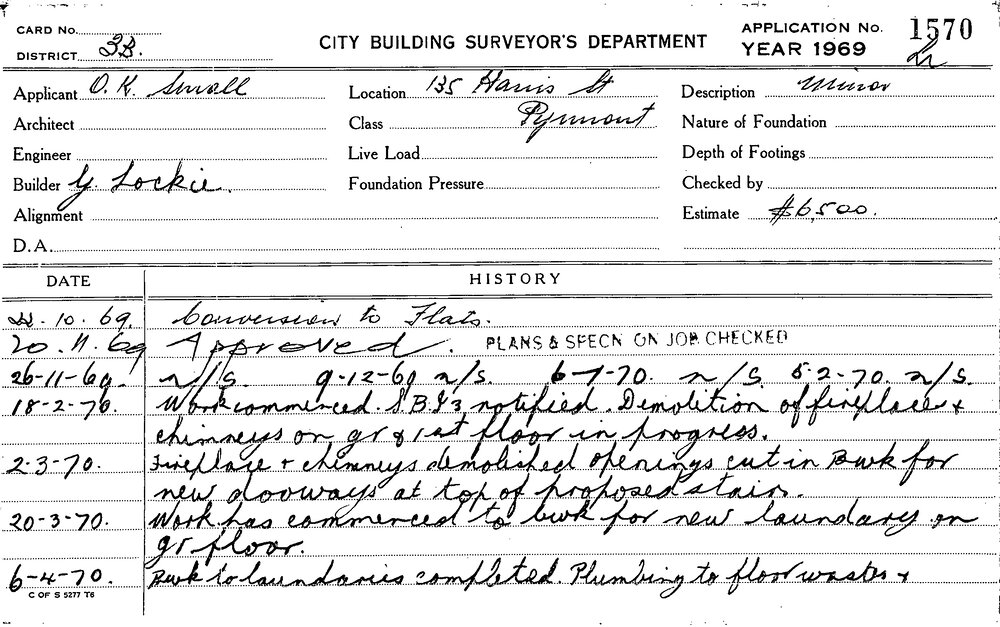 CARD No.
DISTRICT 3B.
CITY BUILDING SURVEYOR'S DEPARTMENT
APPLICATION No. 1570
YEAR 1969
Applicant O. K. Small
Location 135 Harris St
Description Minor
Architect
Class Pyrmont
Nature of Foundation
Engineer
Live Load
Depth of Footings
Builder G. Lockie.
Foundation Pressure
Checked by
Alignment
Estimate $6,500.
D.A.
DATE HISTORY
10. 69. Conversion to Flats.
20. 11. 69 Approved. PLANS & SPECN ON JOB CHECKED
26-11-69. n/s. 9-12-69 n/s. 6-1-70. n/s. 5-2-70. n/s.
18-2-70. Work commenced. notified. Demolition of fireplace +
chimneys on gr & 1st floor in progress.
2-3-70. Fireplace + chimneys demolished openings cut in Bwk for
new doorways at top of proposed stair.
20-3-70. Work has commenced to bwk for new laundary on
gr floor.
6-4-70. Bwk to laundaries completed. Plumbing to floor wastes +
C OF S 5277 T6